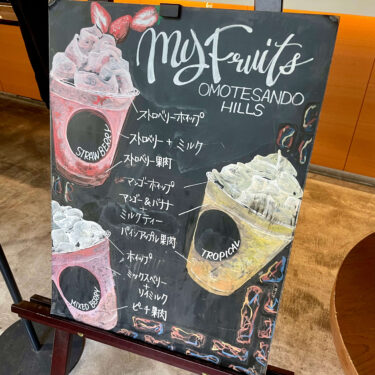 My Fruits
OMOTESANDO
HILLS
STRAWBERRY
ストロベリーホイップ
ストロベリー + ミルク
ストロベリー果肉
マンゴーホイップ
マンゴー&バナナ
+
ミルクティー
パインアップル果肉
TROPICAL
ホイップ
ミックスベリー
+
ソイミルク
ピーチ果肉
MIXED BERRY